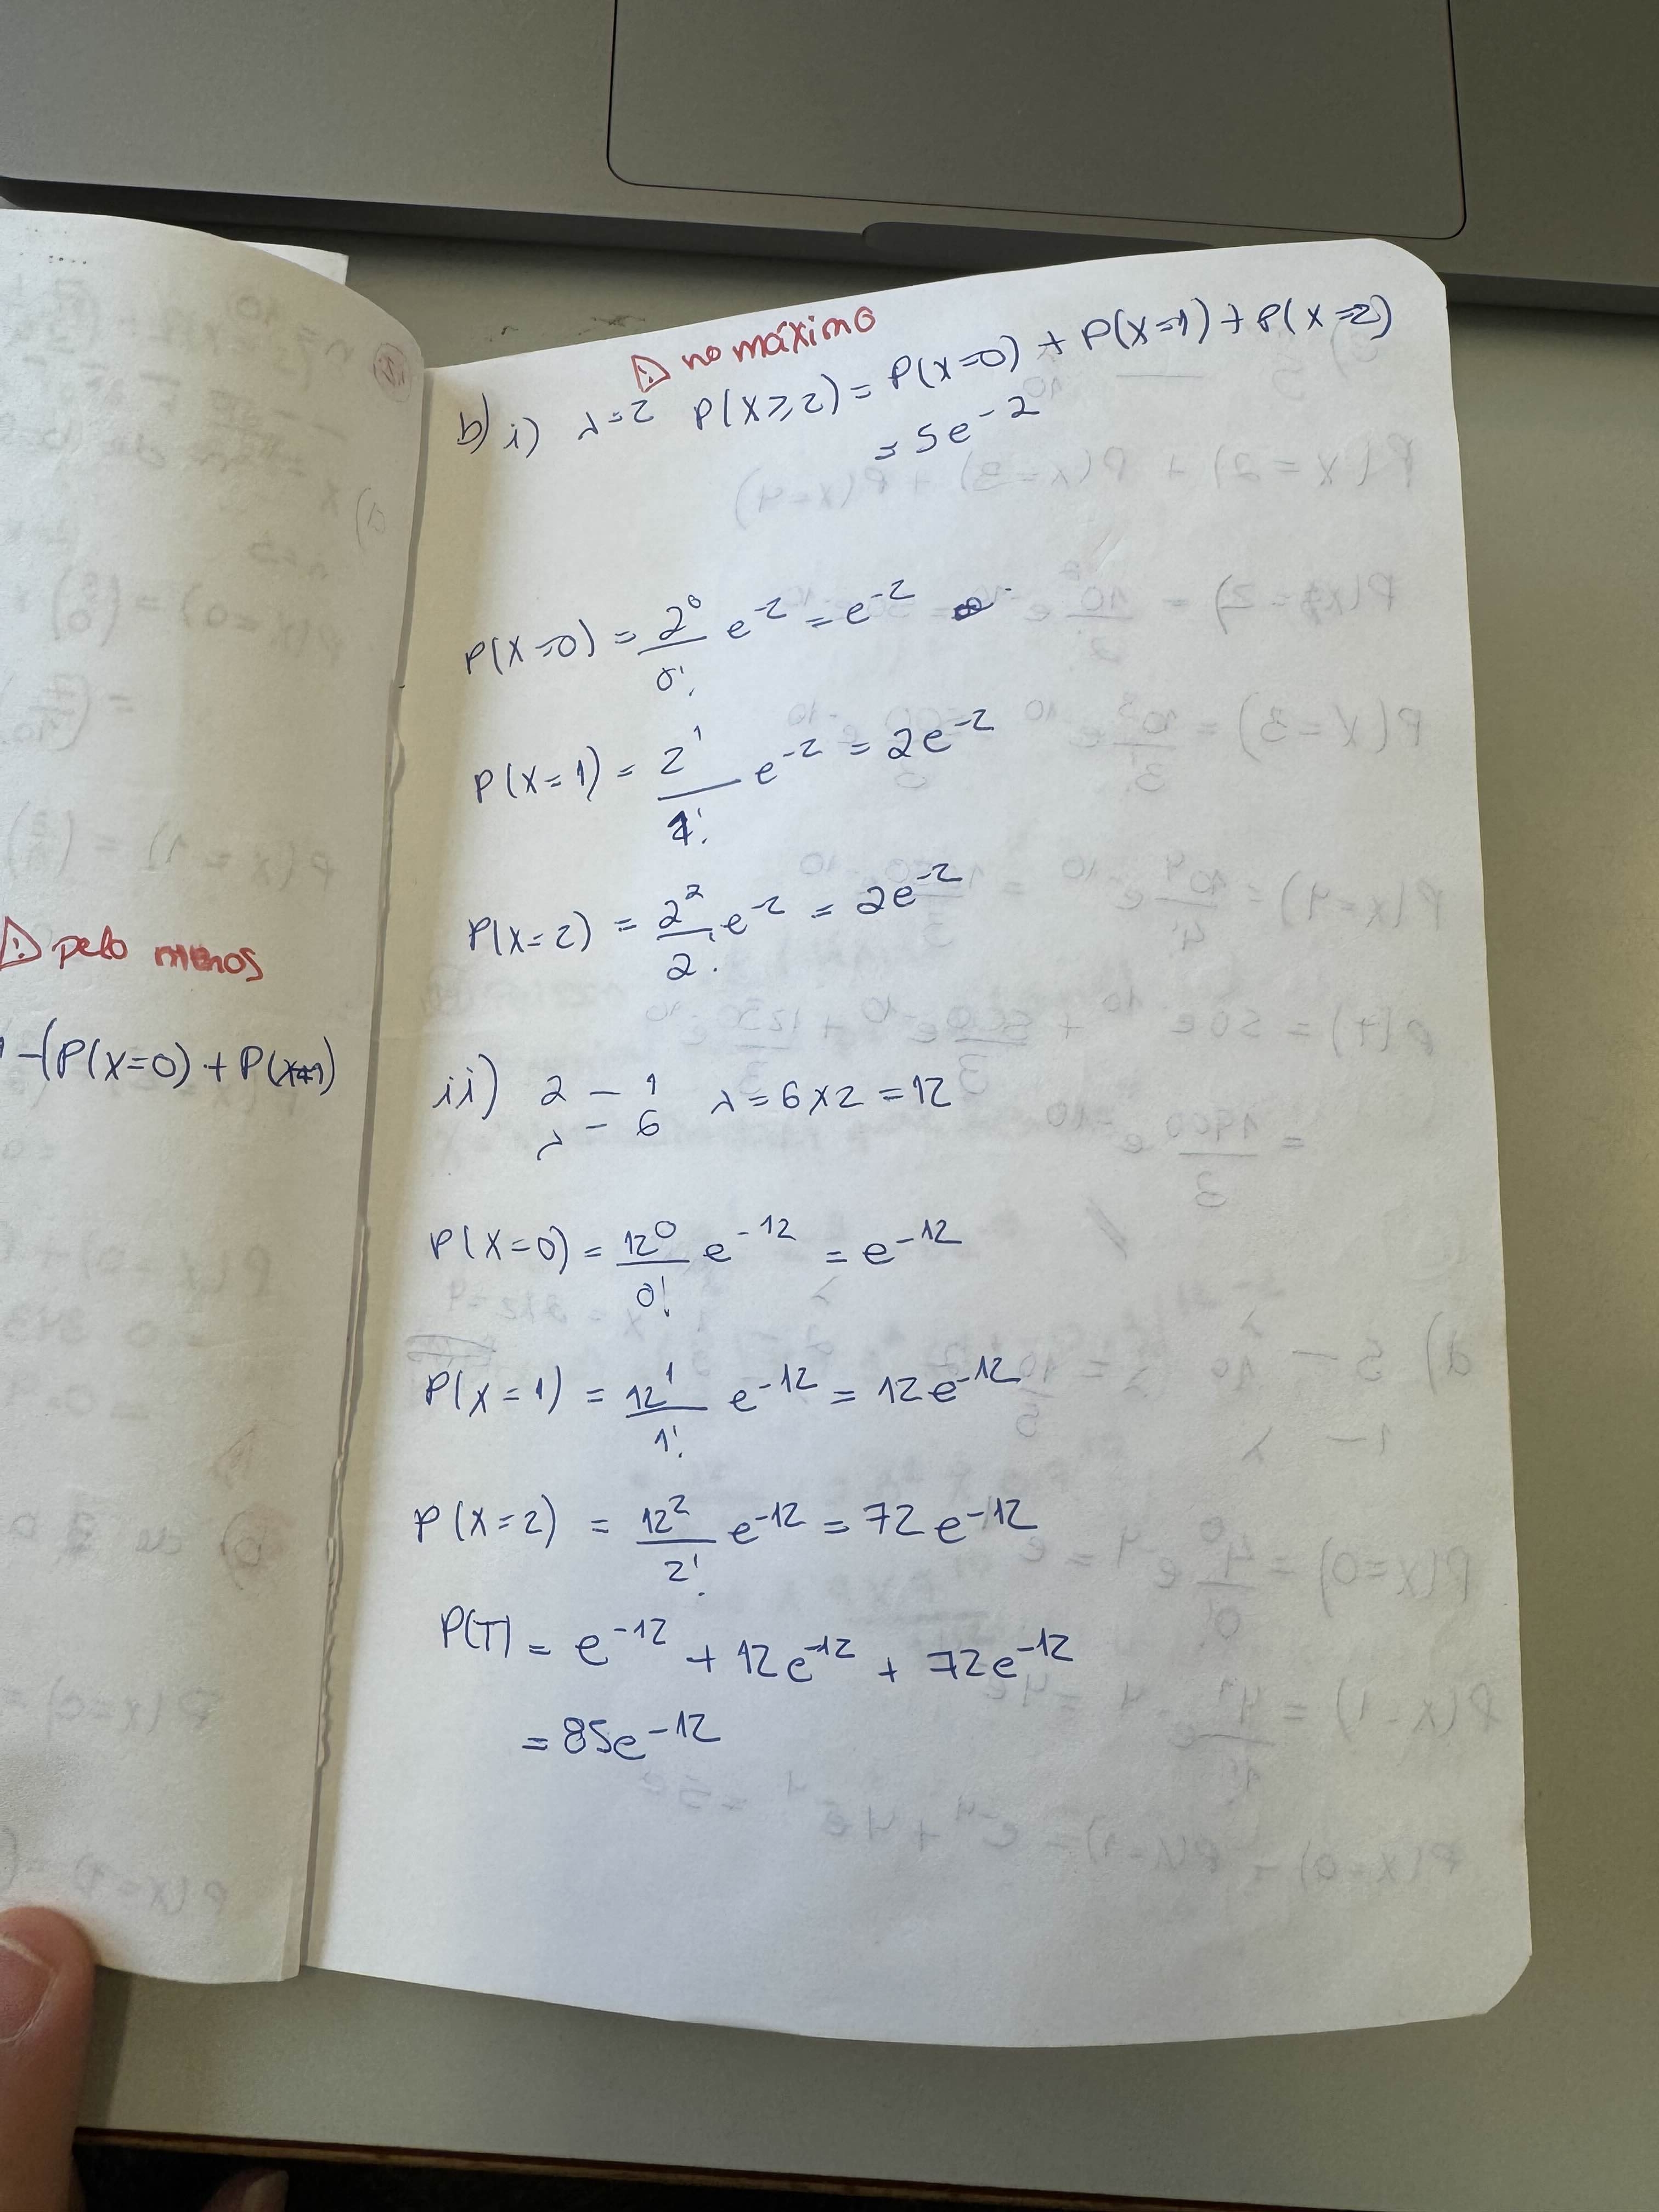 ⚠ pelo menos
1-(P(X=0)+P(X=1)
⚠ no máximo
b) i) λ=2 P(X≥2) = P(X=0) + P(X=1) + P(X=2)
= 5e^-2
P(X=0) = 2^0/0! e^-2 = e^-2
P(X=1) = 2^1/1! e^-2 = 2e^-2
P(X=2) = 2^2/2! e^-2 = 2e^-2
ii) 2 - 1 λ = 6x2 = 12
λ - 6
P(X=0) = 12^0/0! e^-12 = e^-12
P(X=1) = 12^1/1! e^-12 = 12e^-12
P(X=2) = 12^2/2! e^-12 = 72e^-12
P(T) = e^-12 + 12e^-12 + 72e^-12
= 85e^-12